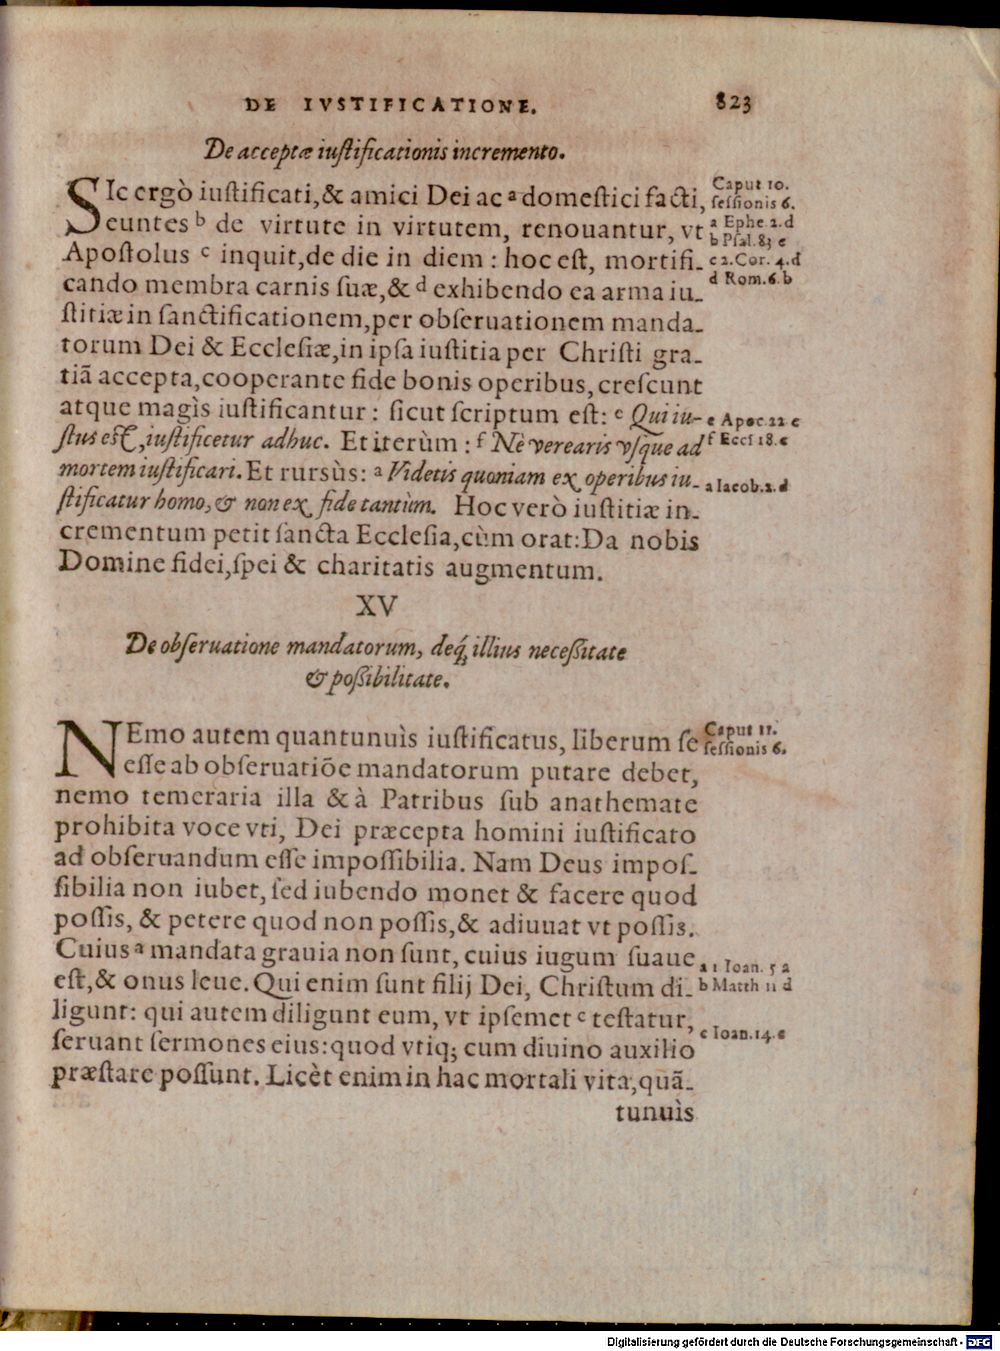 DE IVSTIFICATIONE. 823
De acceptæ iuſtificationis incremento.
SIc ergò iuſtificati,& amici Dei ac ᵃ domeſtici facti,
euntes ᵇ de virtute in virtutem, renouantur, vt
Apoſtolus ᶜ inquit,de die in diem : hoc eſt, mortifi-
cando membra carnis ſuæ,& ᵈ exhibendo ea arma iu-
ſtitiæ in ſanctificationem,per obſeruationem manda-
torum Dei & Eccleſiæ,in ipſa iuſtitia per Chriſti gra-
tiã accepta,cooperante fide bonis operibus,creſcunt
atque magìs iuſtificantur : ſicut ſcriptum eſt: ᵉ Qui iu-
ſtus eſt,iuſtificetur adhuc. Et iterùm : ᶠ Nè verearis vſque ad
mortem iuſtificari. Et rursùs: ᵃ Videtis quoniam ex operibus iu-
ſtificatur homo,& non ex fide tantùm. Hoc verò iuſtitiæ in-
crementum petit ſancta Eccleſia,cùm orat:Da nobis
Domine fidei,ſpei & charitatis augmentum.
Caput 10.
ſeſſionis 6.
a Ephe 2.d
b Pſal.83 c
c 2.Cor. 4.d
d Rom.6.b
e Apoc.22 c
f Eccſ 18.c
a Iacob.2.d
XV
De obſeruatione mandatorum, deq́; illius neceßitate
& poßibilitate.
NEmo autem quantunuìs iuſtificatus, liberum ſe
eſſe ab obſeruatiõe mandatorum putare debet,
nemo temeraria illa & à Patribus ſub anathemate
prohibita voce vti, Dei præcepta homini iuſtificato
ad obſeruandum eſſe impoſſibilia. Nam Deus impoſ-
ſibilia non iubet,ſed iubendo monet & facere quod
poſſis, & petere quod non poſſis,& adiuuat vt poſſis.
Cuius ᵃ mandata grauia non ſunt, cuius iugum ſuaue
eſt,& onus leue. Qui enim ſunt filij Dei, Chriſtum di-
ligunt: qui autem diligunt eum, vt ipſemet ᶜ teſtatur,
ſeruant ſermones eius:quod vtiq; cum diuino auxilio
præſtare poſſunt. Licèt enim in hac mortali vita,quã-
tunuìs
Caput 11.
ſeſſionis 6.
a 1 Ioan. 5 a
b Matth 11 d
c Ioan.14.c
Digitalisierung gefördert durch die Deutsche Forschungsgemeinschaft - DFG